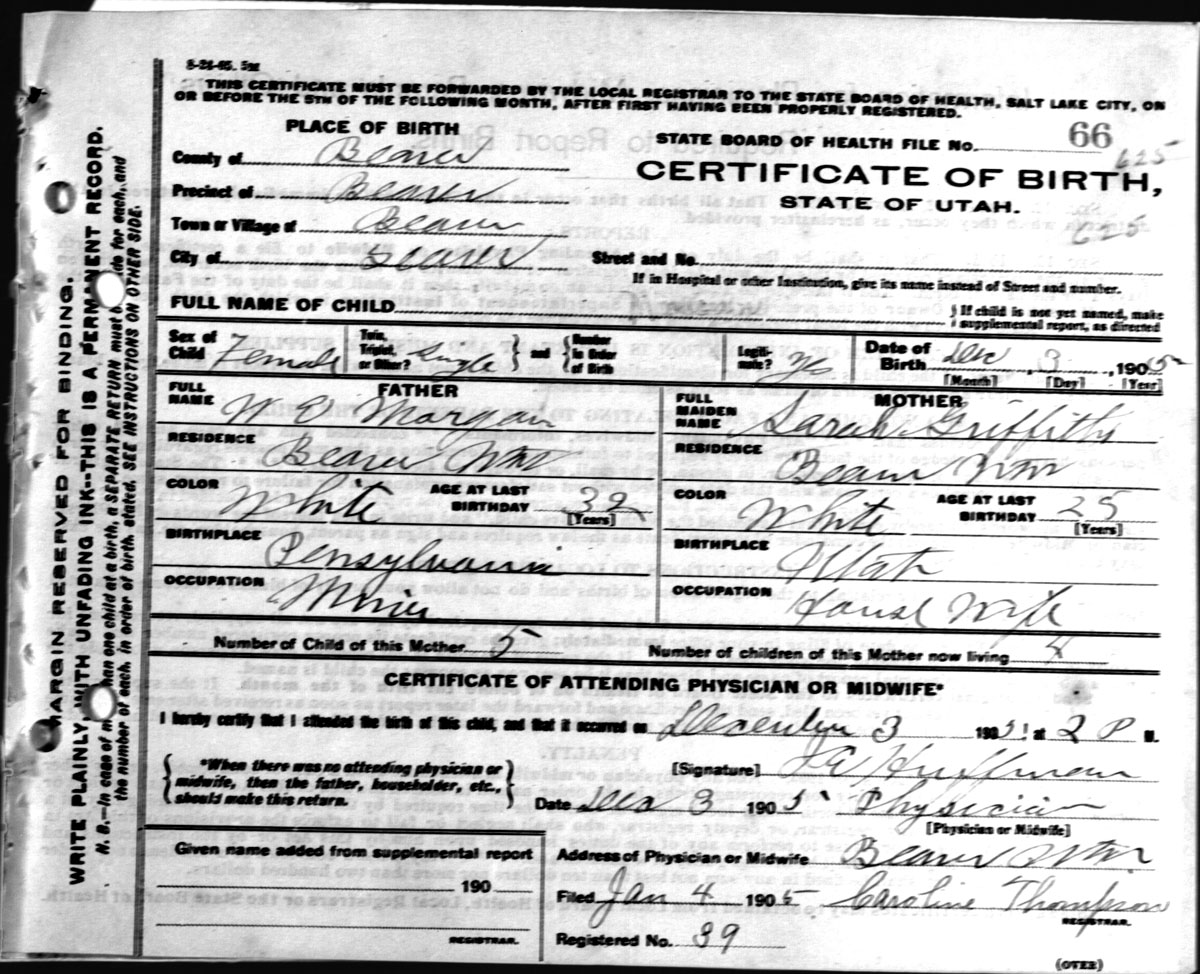 8-21-05. 5M
THIS CERTIFICATE MUST BE FORWARDED BY THE LOCAL REGISTRAR TO THE STATE BOARD OF HEALTH, SALT LAKE CITY, ON
OR BEFORE THE 5TH OF THE FOLLOWING MONTH, AFTER FIRST HAVING BEEN PROPERLY REGISTERED.
PLACE OF BIRTH
STATE BOARD OF HEALTH FILE No. 66
625
County of Beaver
CERTIFICATE OF BIRTH,
Precinct of Beaver
STATE OF UTAH.
Town or Village of Beaver
625
City of Beaver Street and No.
If in Hospital or other Institution, give its name instead of Street and number.
FULL NAME OF CHILD Morgan } If child is not yet named, make
supplemental report, as directed
Sex of Child Female Twin, Triplet, or Other? Single } and { Number in Order of Birth Legitimate? Yes Date of Birth Dec 3, 1905
[Month] [Day] [Year]
FATHER MOTHER
FULL NAME W E Morgan FULL MAIDEN NAME Sarah Griffiths
RESIDENCE Beaver RESIDENCE Beaver
COLOR White AGE AT LAST BIRTHDAY 32 [Years] COLOR White AGE AT LAST BIRTHDAY 25 [Years]
BIRTHPLACE Pensylvania BIRTHPLACE Utah
OCCUPATION Miner OCCUPATION House Wife
Number of Child of this Mother 5 Number of children of this Mother now living 4
CERTIFICATE OF ATTENDING PHYSICIAN OR MIDWIFE*
I hereby certify that I attended the birth of this child, and that it occurred on December 3 1905, at 2 P M.
{ *When there was no attending physician or
midwife, then the father, householder, etc.,
should make this return. }
[Signature] Huffman
Date Dec 3 1905 Physician
[Physician or Midwife]
Given name added from supplemental report
190
REGISTRAR.
Address of Physician or Midwife Beaver
Filed Jan 4 190 Caroline Thompson
REGISTRAR.
Registered No. 39
(OVER)
MARGIN RESERVED FOR BINDING.
WRITE PLAINLY WITH UNFADING INK--THIS IS A PERMANENT RECORD.
N. B.—In case of more than one child at a birth, a SEPARATE RETURN must be made for each, and
the number of each, in order of birth, stated. SEE INSTRUCTIONS ON OTHER SIDE.